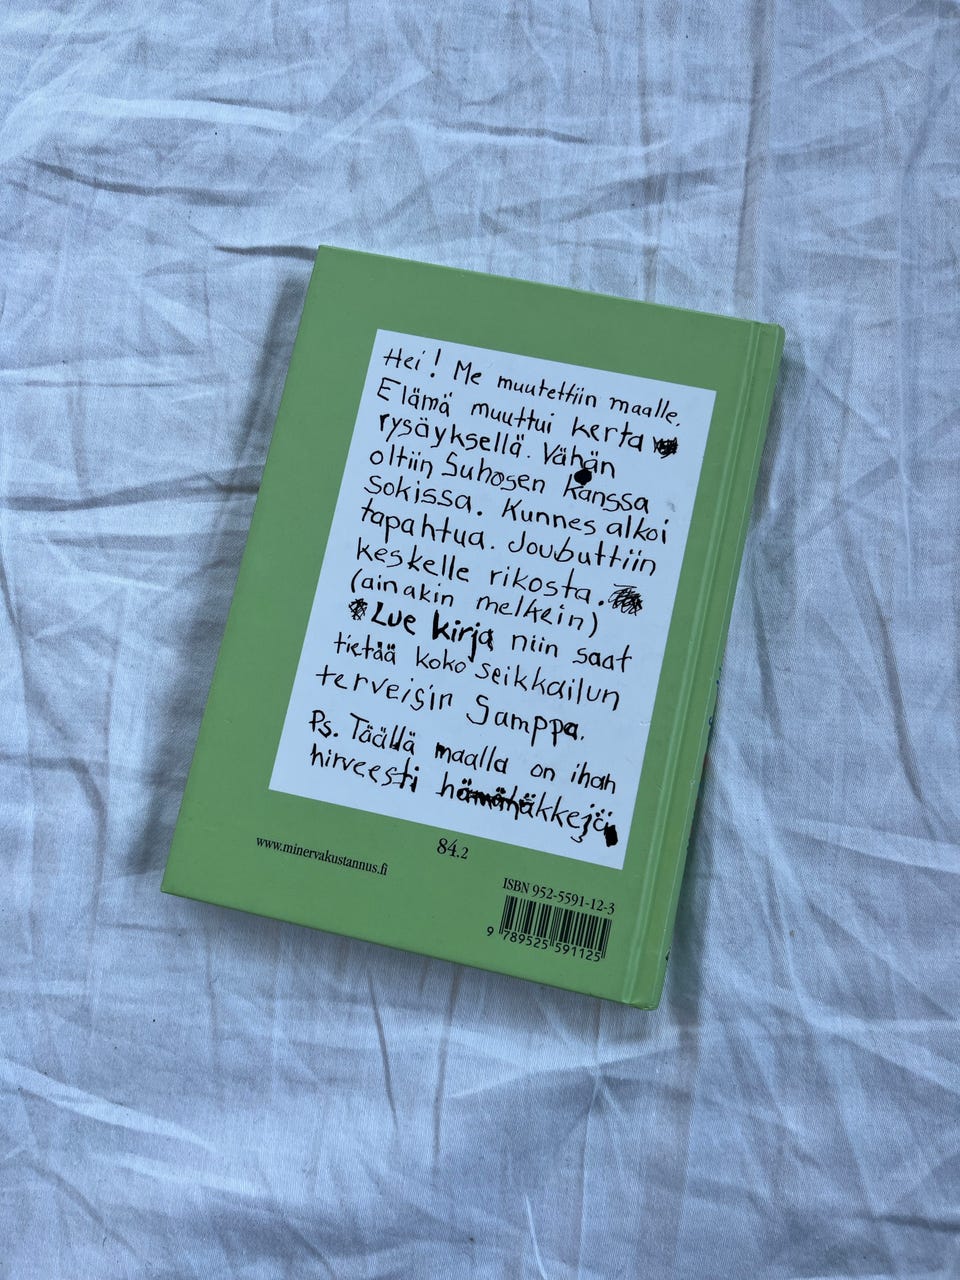 Hei! Me muutettiin maalle.
Elämä muuttui kerta
rysäyksellä. Vähän
oltiin Suhosen kanssa
sokissa. Kunnes alkoi
tapahtua. Joubuttiin
keskelle rikosta.
(ainakin melkein)
Lue kirja niin saat
tietää koko seikkailun
terveisin Samppa.
Ps. Täällä maalla on ihan
hirveesti hämähäkkejä
www.minervakustannus.fi
84.2
ISBN 952-5591-12-3
9 789525 591125